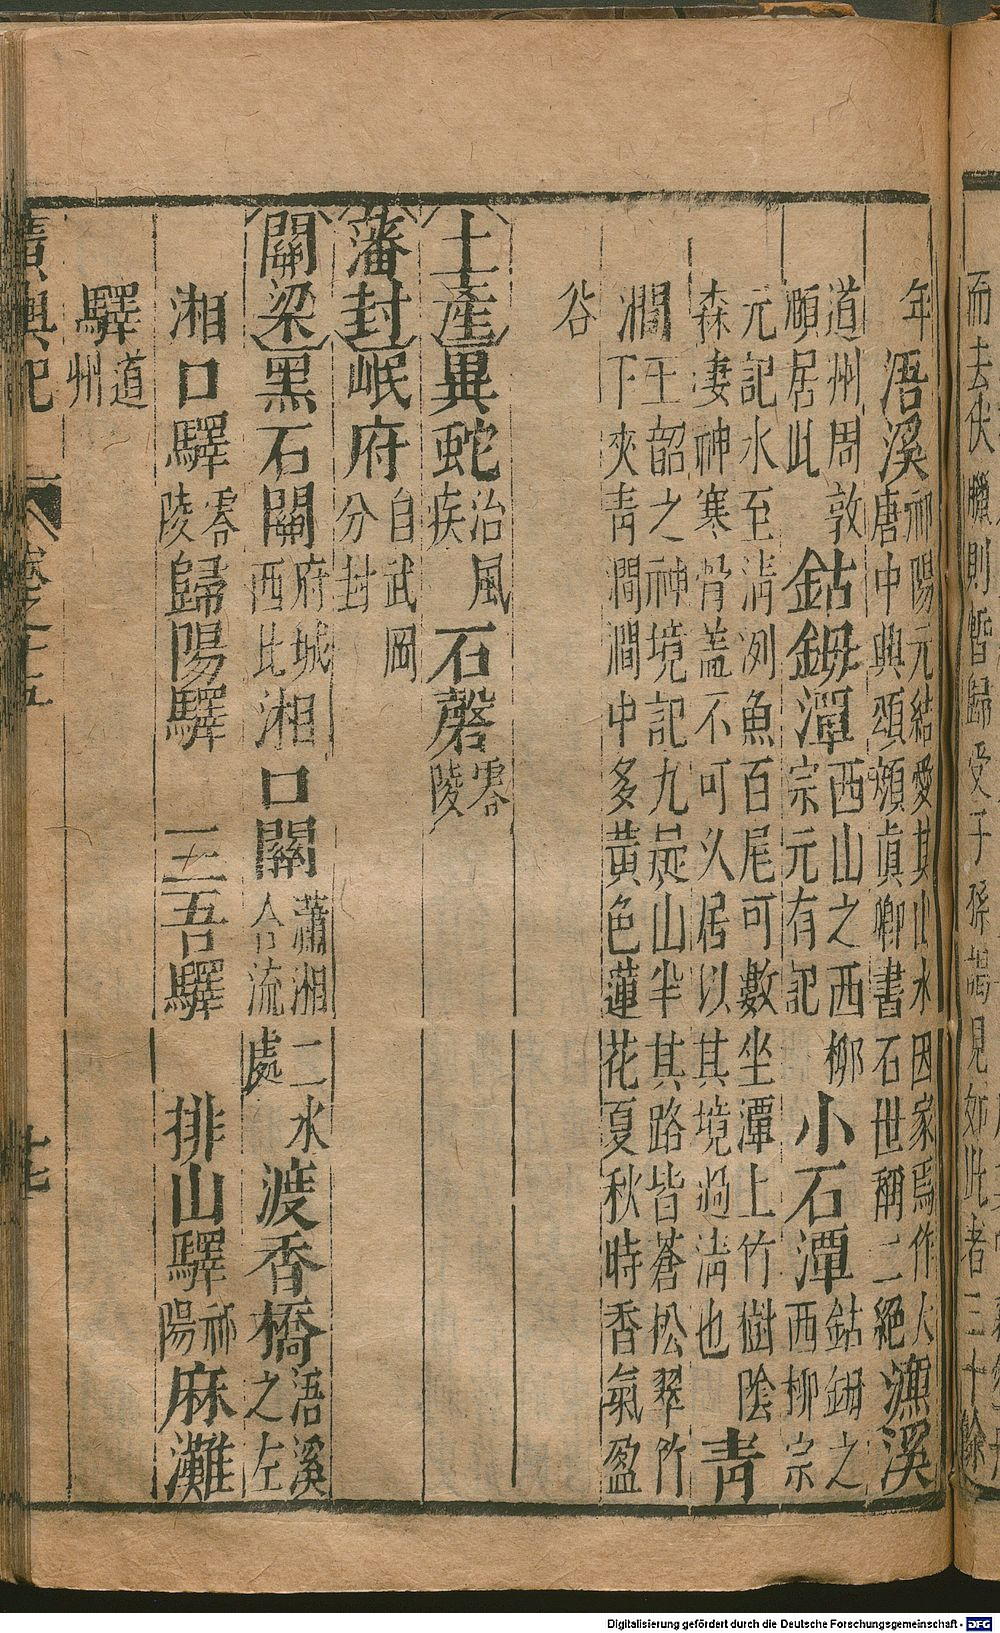 而去伏臘則暫歸受子孫謁見如此者三十餘
年浯溪祁陽元結愛其山水因家焉作大唐中興頌顏真卿書石世稱二絕濂溪
道州周敦頤居此鈷鉧潭西山之西柳宗元有記小石潭鈷鉧之西柳宗
元記水至清冽魚百尾可數坐潭上竹樹陰森凄神寒骨蓋不可久居以其境過清也青
澗王韶之神境記九疑山半其路皆蒼松翠竹下夾青澗澗中多黃色蓮花夏秋時香氣盈
谷
土產異蛇治風疾石磬零陵
藩封岷府自武岡分封
關梁黑石關府城西北湘口關瀟湘二水合流處渡香橋浯溪之左
湘口驛零陵歸陽驛三吾驛排山驛祁陽麻灘
驛道州
廣輿記 卷之十五 十七
Digitalisierung gefördert durch die Deutsche Forschungsgemeinschaft - DFG